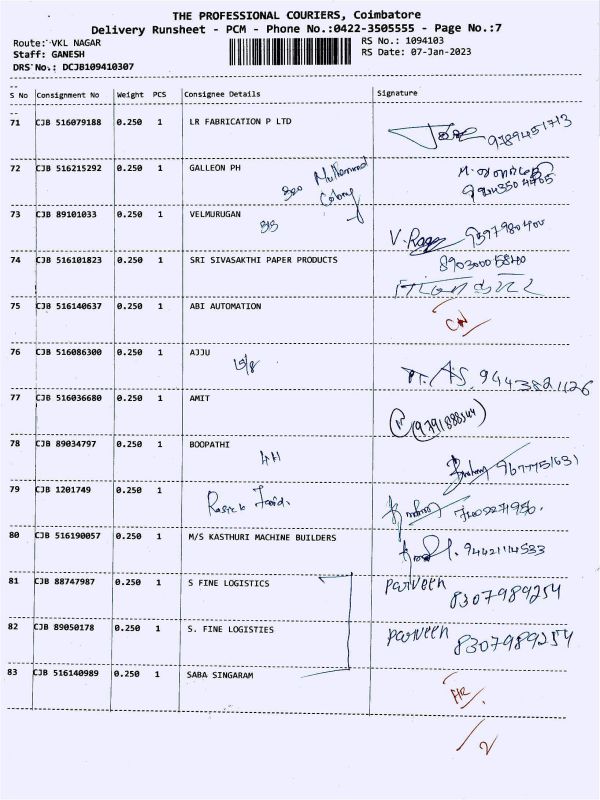 THE PROFESSIONAL COURIERS, Coimbatore
Delivery Runsheet - PCM - Phone No.:0422-3505555 - Page No.:7
Route: VKL NAGAR
RS No.: 1094103
Staff: GANESH
RS Date: 07-Jan-2023
DRS No.: DCJB109410307
S No Consignment No Weight PCS Consignee Details Signature
71 CJB 516079188 0.250 1 LR FABRICATION P LTD
9789451713
72 CJB 516215292 0.250 1 GALLEON PH
Colony
73 CJB 89101033 0.250 1 VELMURUGAN
74 CJB 516101823 0.250 1 SRI SIVASAKTHI PAPER PRODUCTS
75 CJB 516140637 0.250 1 ABI AUTOMATION
76 CJB 516086300 0.250 1 AJJU
9443821126
77 CJB 516036680 0.250 1 AMIT
78 CJB 89034797 0.250 1 BOOPATHI
9677751631
79 CJB 1201749 0.250 1
80 CJB 516190057 0.250 1 M/S KASTHURI MACHINE BUILDERS
9442114533
81 CJB 88747987 0.250 1 S FINE LOGISTICS Parveen
8307989254
82 CJB 89050178 0.250 1 S. FINE LOGISTIES Parveen
8307989254
83 CJB 516140989 0.250 1 SABA SINGARAM